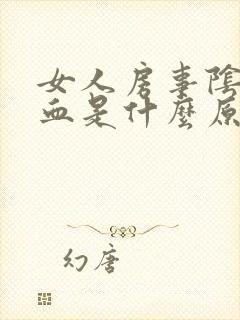 女人房事陰
血是什麼原
幻唐